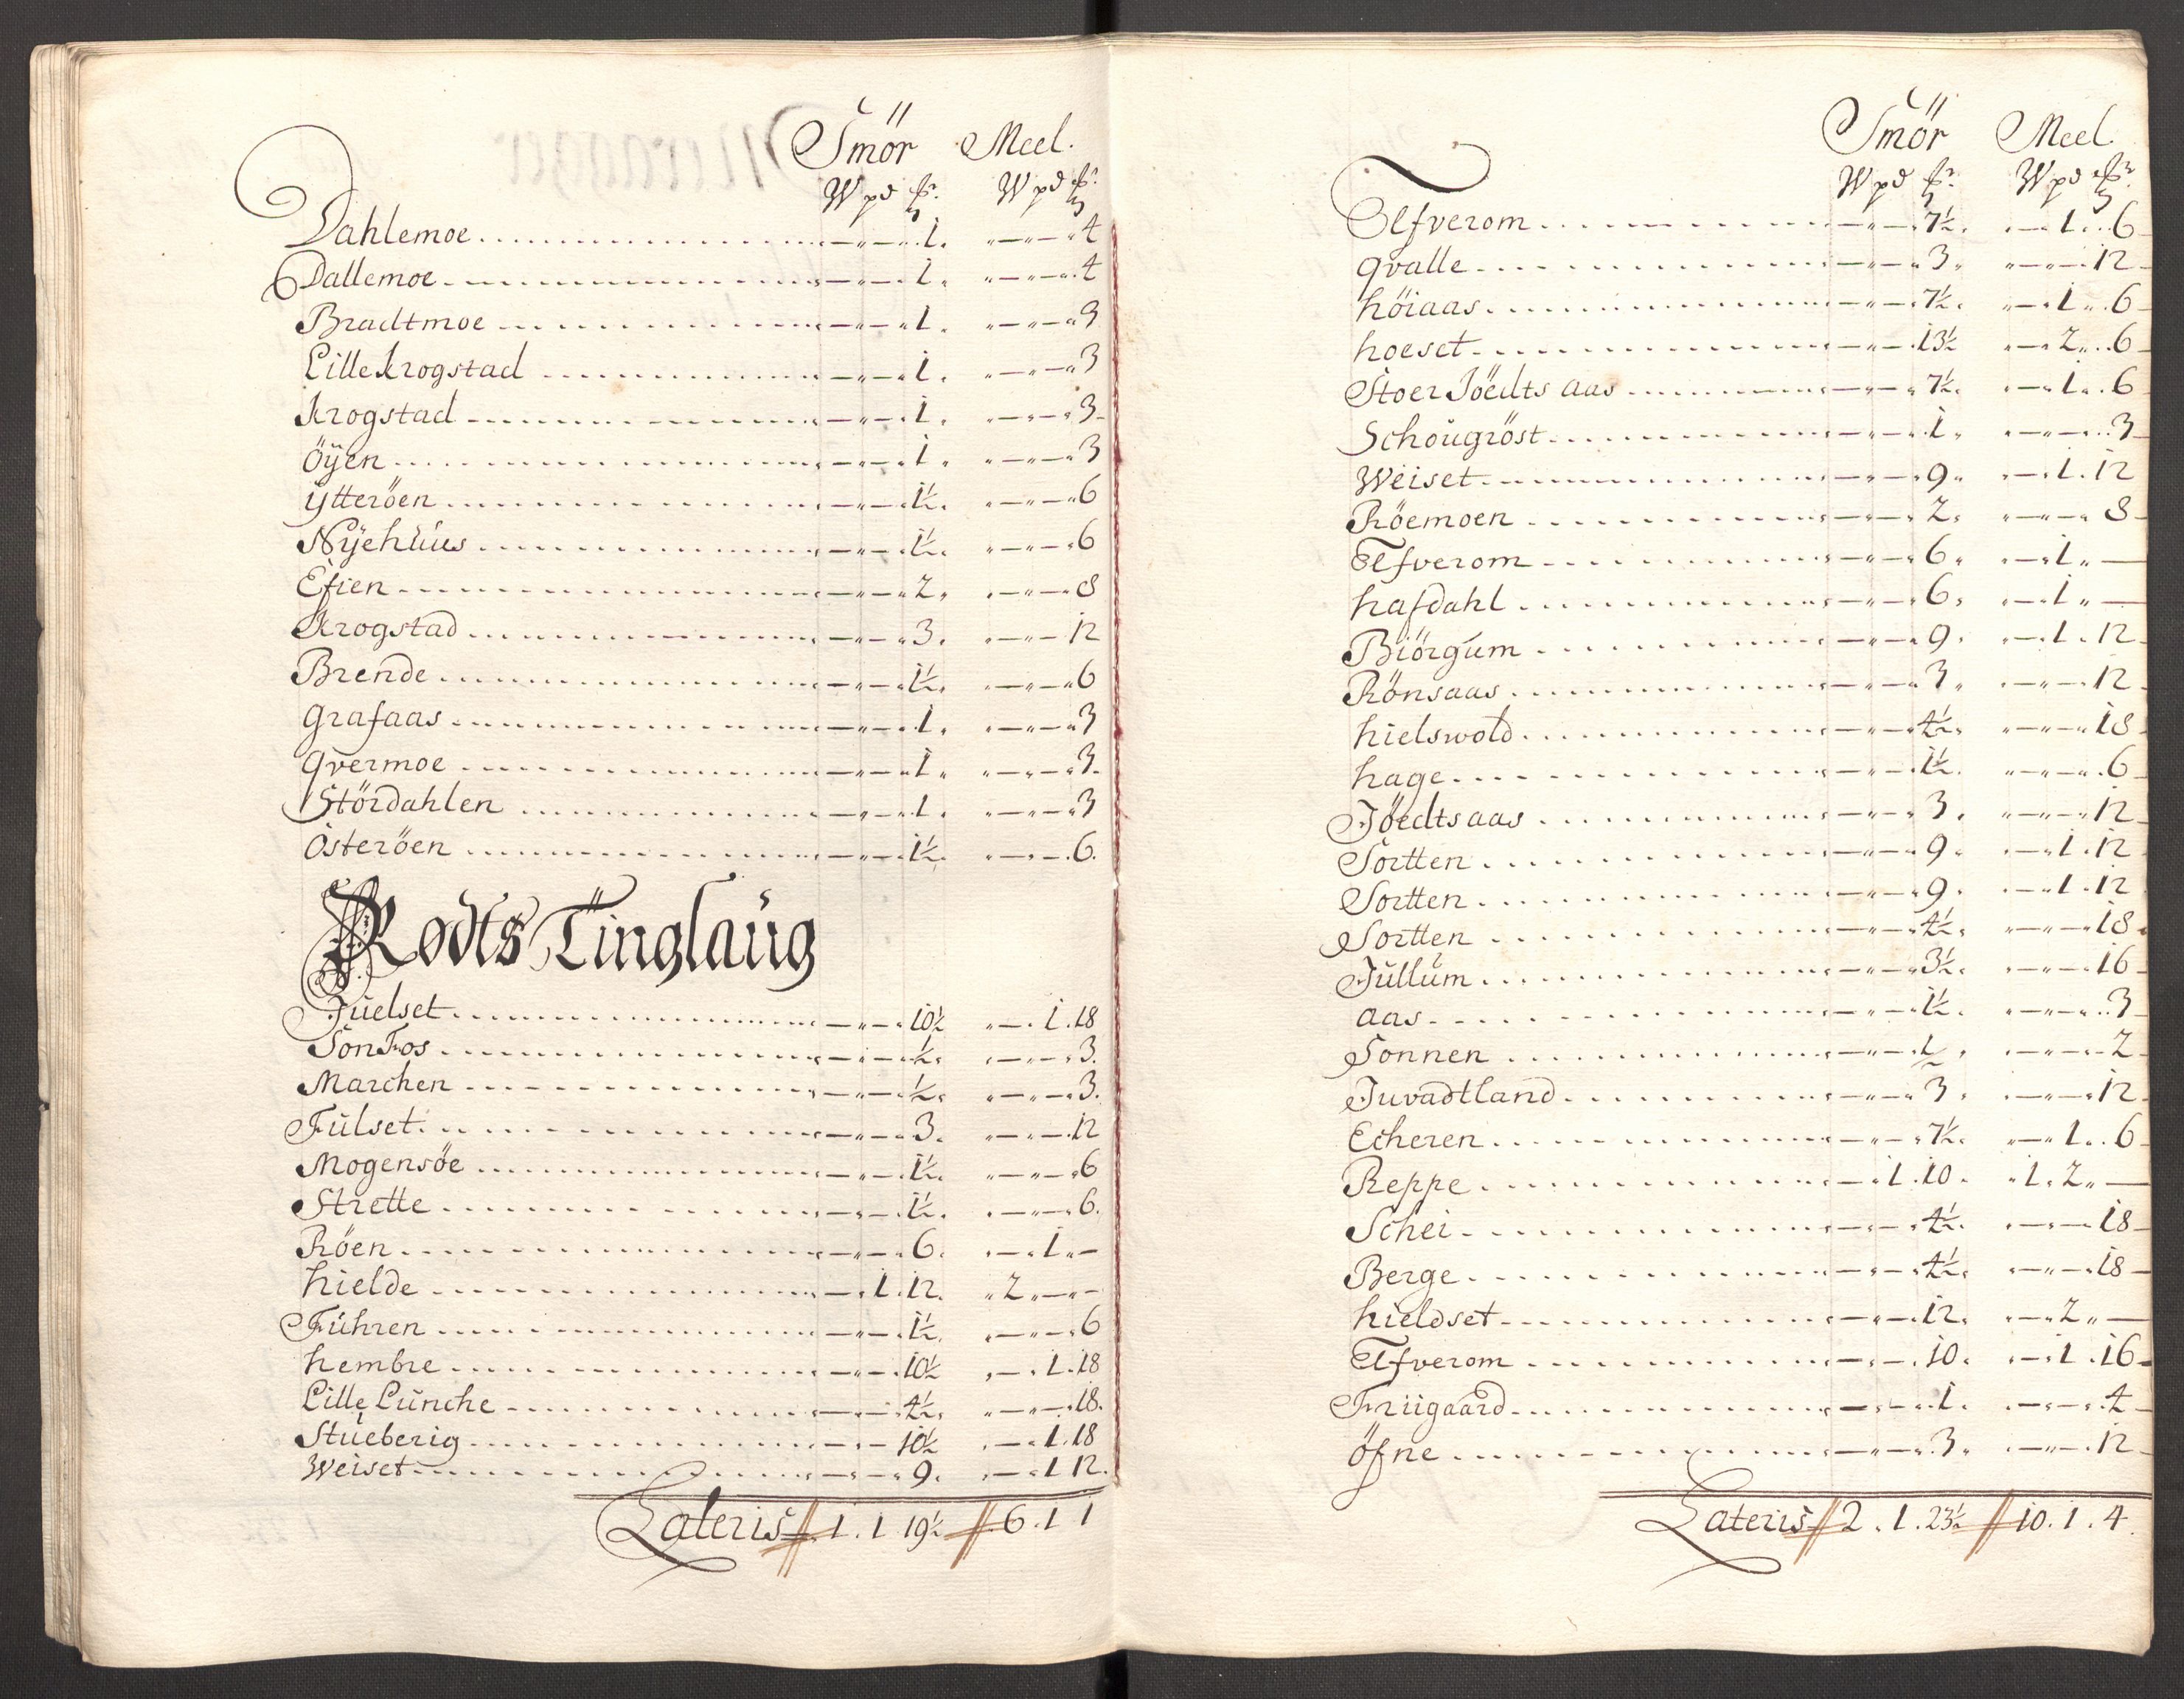 Smör Meel.
W pd ℔r. W pd ℔r.
Dahlemoe 1. 4
Dallemoe 1. 4
Bradtmoe 1. 3
Lille krogstad 1. 3
krogstad 1. 3
öÿen 1. 3
ÿtteröen 1½. 6
Nÿehuus 1½. 6
Efien 2. 8
Krogstad 3. 12
Brende 1½. 6
grafaas 1. 3
qvermoe 1. 3.
Stördahlen 1. 3
österöen 1½. 6.
Rødts Tinglaug
Juelset 10½ 1.18
Sonfos ½. 3.
Marchen ½. 3.
Fulset 3. 12
Mogensöe 1½. 6
Strette 1½. 6.
Röen 6. 1
hielde 1.12. 2
Fuhren 1½. 6
hembre 10½ 1.18
Lille Lunche 4½. 18.
Stueberig 10½ 1.18
Weiset 9. 1 12.
Lateris 1.1 19½ 6.1 1
Smör Meel.
W pd ℔r. W pd ℔r.
Elfverom 7½. 1. 6
qvalle 3. 12
höiaas 7½. 1. 6
hoeset 13½ 2. 6
Stoer Jöedts aas 7½. 1. 6
Schougröst 1. 3
Weiset 9. 1.12
Röemoen 2. 8
Elfverom 6. 1
hafdahl 6. 1
Biörgum 9. 1.12
Rönsaas 3. 12
hielswold 4½. 18
hage 1½. 6
Jöedtsaas 3. 12
Sortten 9. 1.12
Sortten 9. 1.12
Sortten 4½. 18
Jullum 3½. 16
aas 1½. 3
Sonnen ½. 2
Juvadtland 3. 12
Echeren 7½. 1. 6
Reppe 1.10. 1.2
Schei 4½. 18
Berge 4½. 18
hieldset 12. 2
Elfverom 10. 1.16
Friigaard 1. 4
öfne 3. 12
Lateris 2.1.23½ 10.1.4.